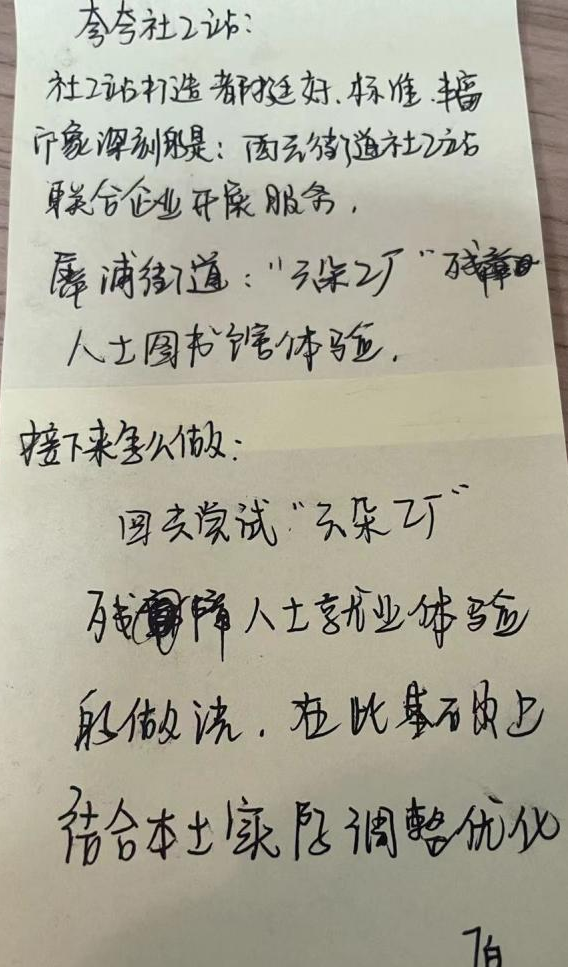 夸夸社工站：
社工站打造都挺好、标准、丰富
印象深刻的是：西云街道社工站
联合企业开展服务，
犀浦街道：“云朵工厂”残障
人士图书馆体验，
接下来怎么做：
回去尝试“云朵工厂”
残障人士就业体验
的做法，在此基础上
结合本土实际调整优化